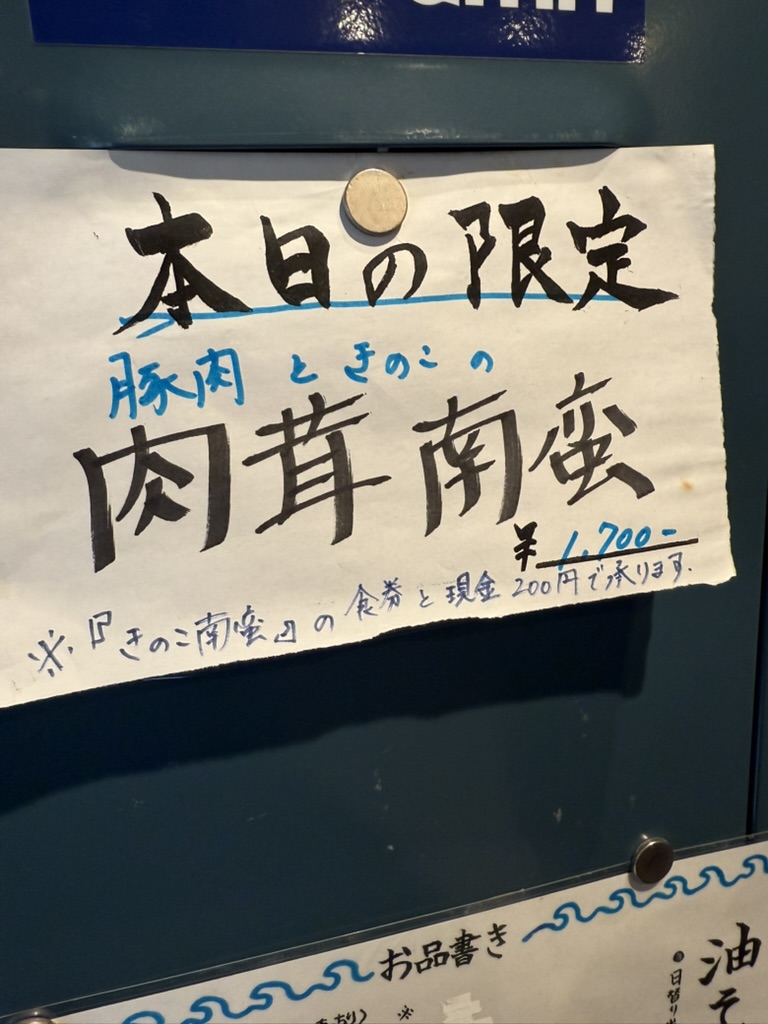 本日の限定
豚肉ときのこの
肉茸南蛮
¥1,700-
※『きのこ南蛮』の食券と現金200円で承ります.
お品書き
油そ